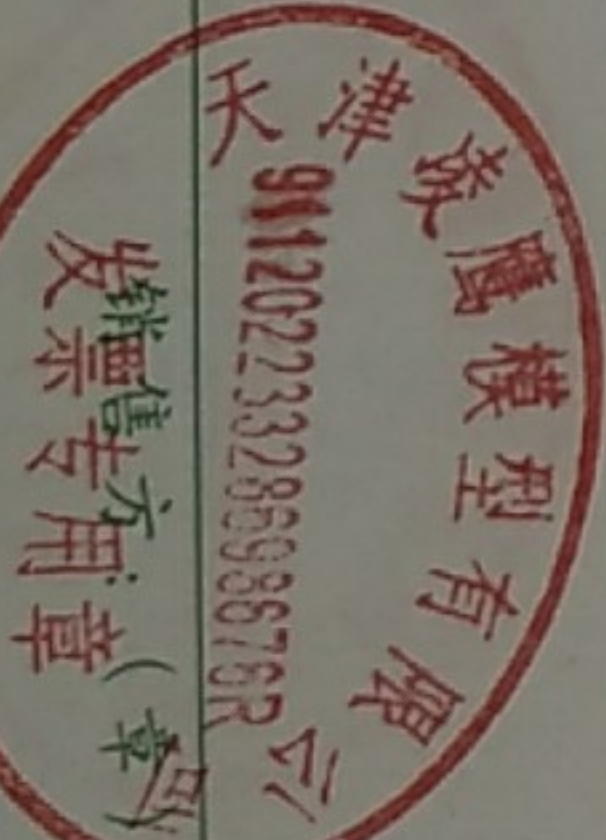 天津鹰模型有限公司
91120223328698676R
发票专用章
销售方:(章)